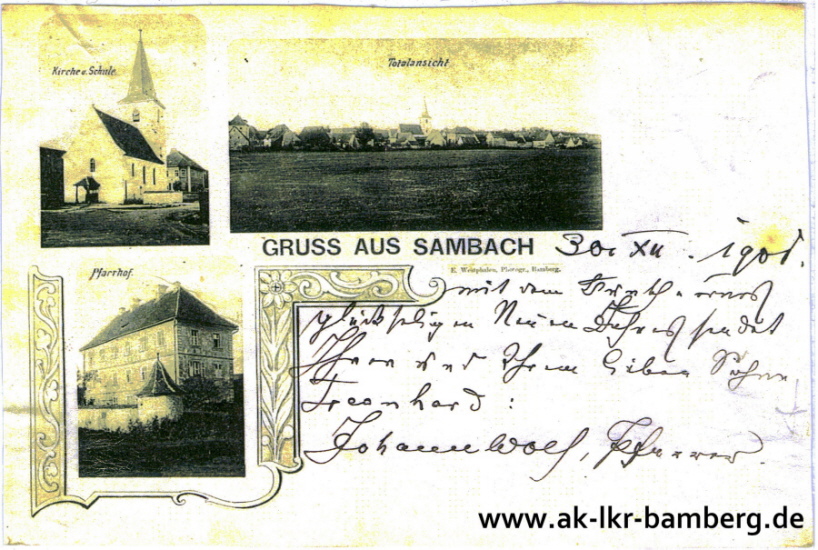 Kirche u. Schule.
Totalansicht
GRUSS AUS SAMBACH
30. XII. 1901.
E. Westphalen, Photogr., Bamberg.
Pfarrhof.
mit dem
glückseligen Neuen Jahres sendet
Ihnen und Ihrem lieben Sohne
:
Johann Wolf, Pfarrer.
www.ak-lkr-bamberg.de